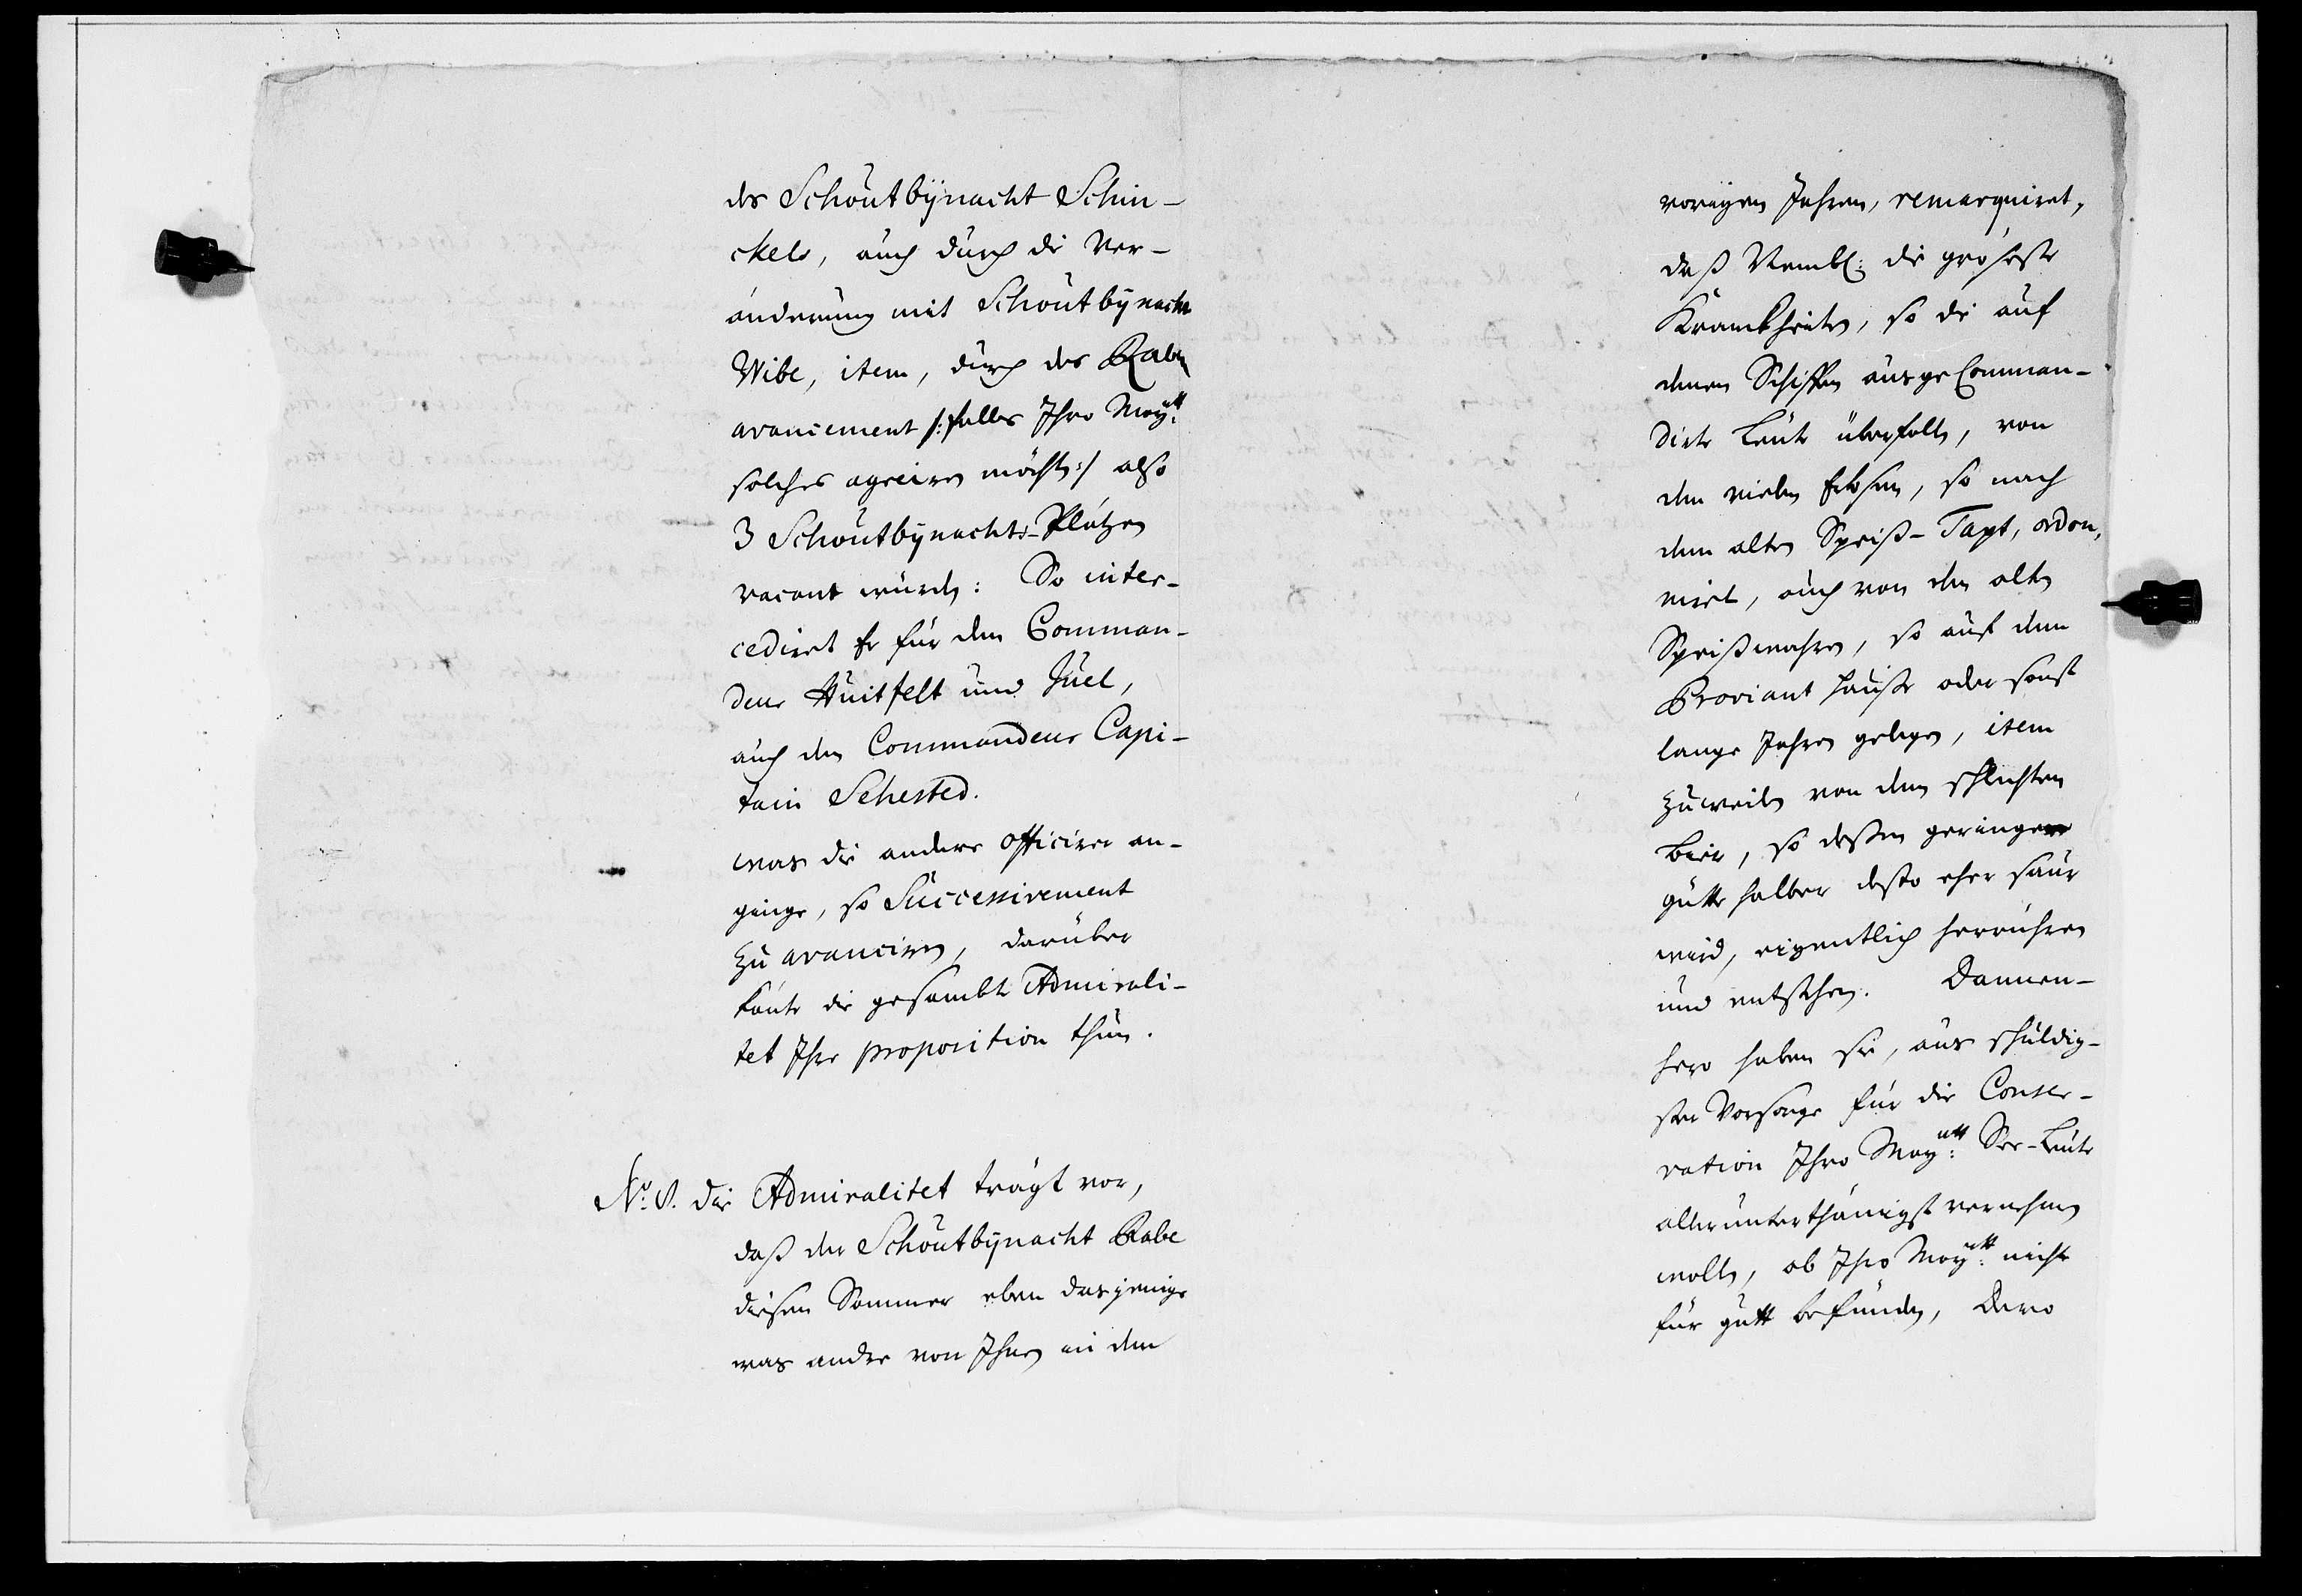 des Schoutbÿnacht Schin-
ckels, auch durch die Ver-
änderung mit Schoutbÿnacht
Wibe, item, durch des Raben
avancement /: falls Ihro Maytt:
solches agreiren möchte:/ also
3 Schoutbÿnachts-Plätzen
vacant würden: So inter-
cediret Er für den Comman-
deur Huitfelt und Juel,
auch den Commandeur Capi-
tain Sehested.
was die andere Officirer an-
ginge, so Successivement
zu avanciren, darüber
könte die gesambte Admirali-
tet Ihre proposition thun.
No. 8. die Admiralitet trägt vor,
daß der Schoutbÿnacht Rabe
diesen Sommer eben dasjenige
was andre von Ihnen in den
vorigen Jahren, remarquiret,
daß Nembl: die gröheste
Kranckheiten, so die auf
denen Schiffen ausge Comman-
dirte Leute überfallen, von
den vielen Erbsen, so nach
dem alten Speiß-Taxt, ordon,
niret, auch von den alten
Speißwahren, so auf dem
Proviant Hauße oder sonst
lange Jahren gelegen, item
zuweilen von dem schlechten
Bier, so deßen geringen
gütte halber desto eher saur
wird, eigentlich herrühren
und entstehen. Dannen-
hero haben sie, aus schuldig-
ster Vorsorge für die Conser-
vation Ihro Mayntt: See-Leute
allerunterthänigst vernehmen
wollen, ob Ihro Maytt: nicht
für gutt befünden, Dero